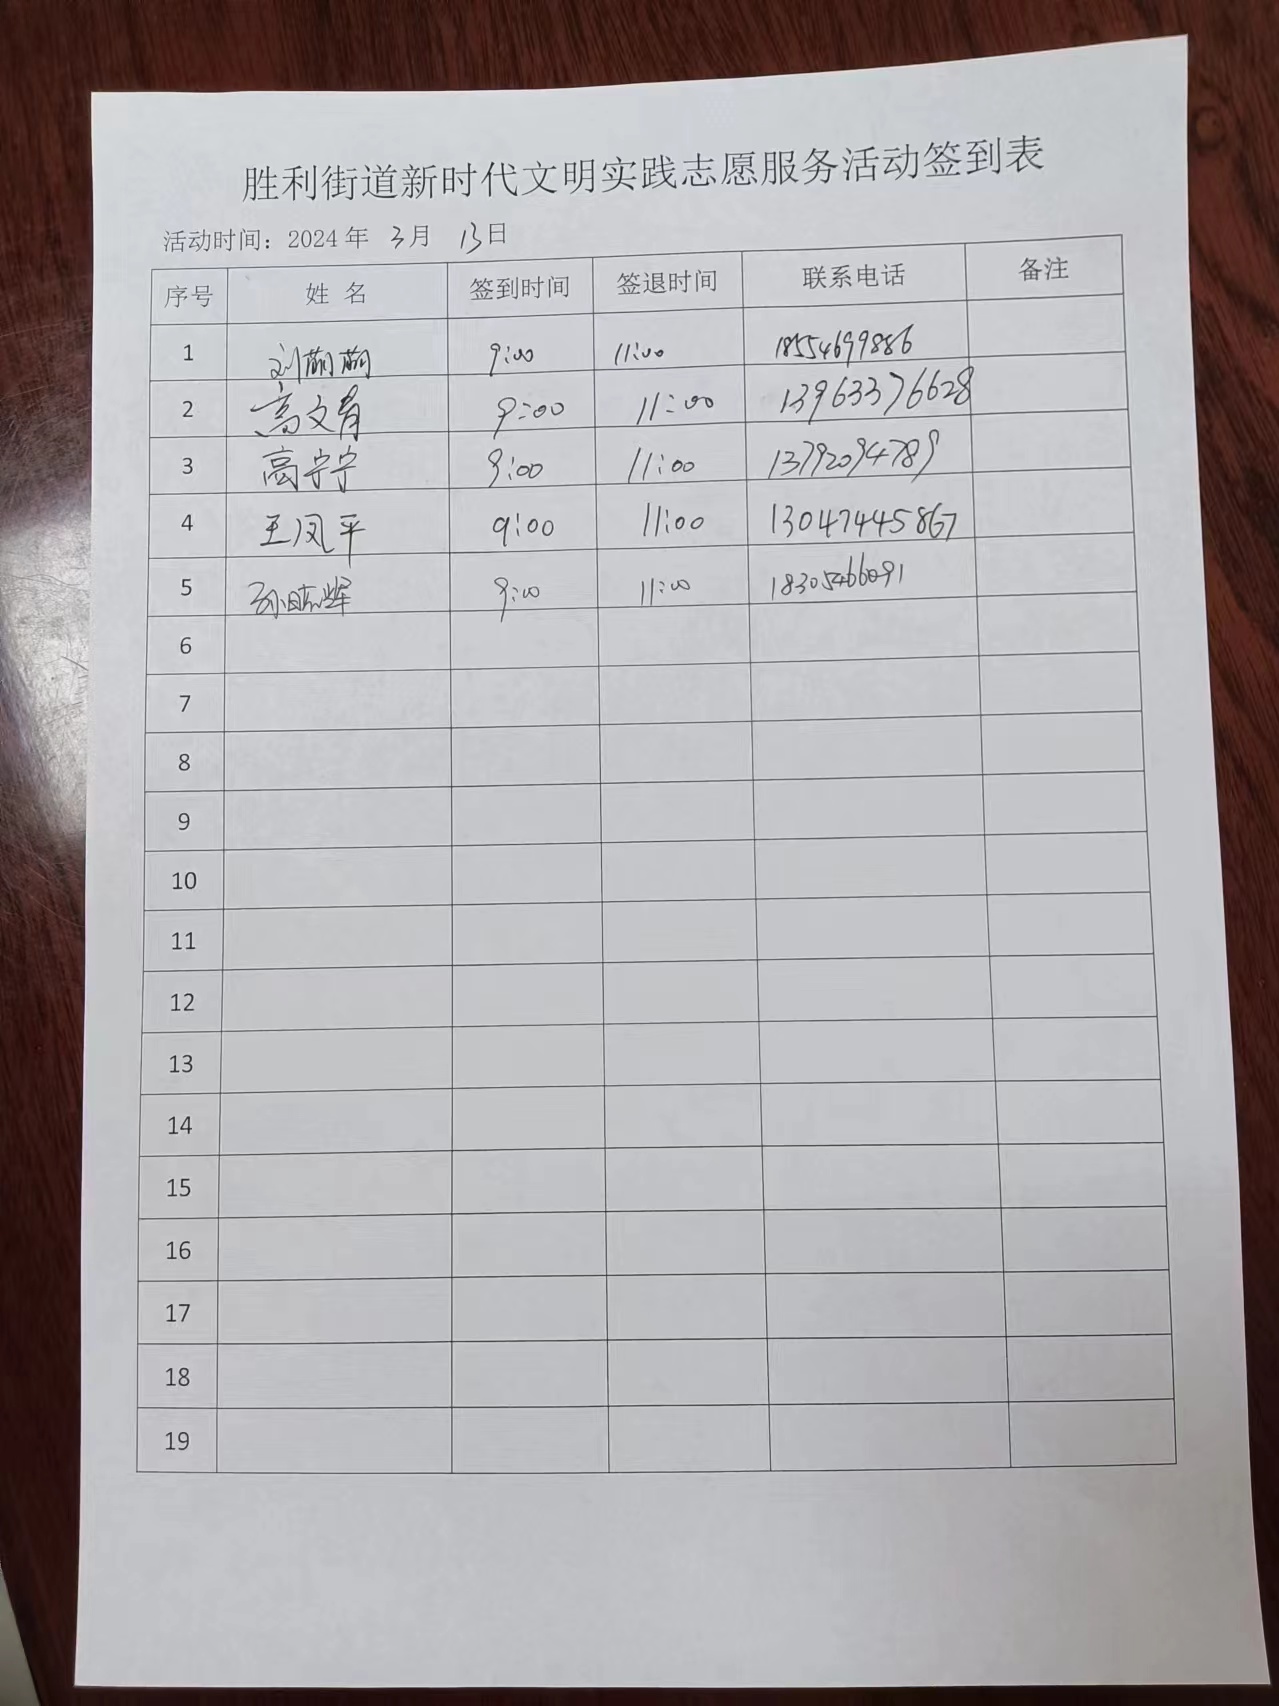 胜利街道新时代文明实践志愿服务活动签到表
活动时间：2024 年 3月 13日
序号 姓 名 签到时间 签退时间 联系电话 备注
1 刘萌萌 9:00 11:00 18554699886
2 高文青 9:00 11:00 13963376628
3 高宁宁 9:00 11:00 13792094789
4 王凤平 9:00 11:00 13047445867
5 9:00 11:00 18305466091
6
7
8
9
10
11
12
13
14
15
16
17
18
19